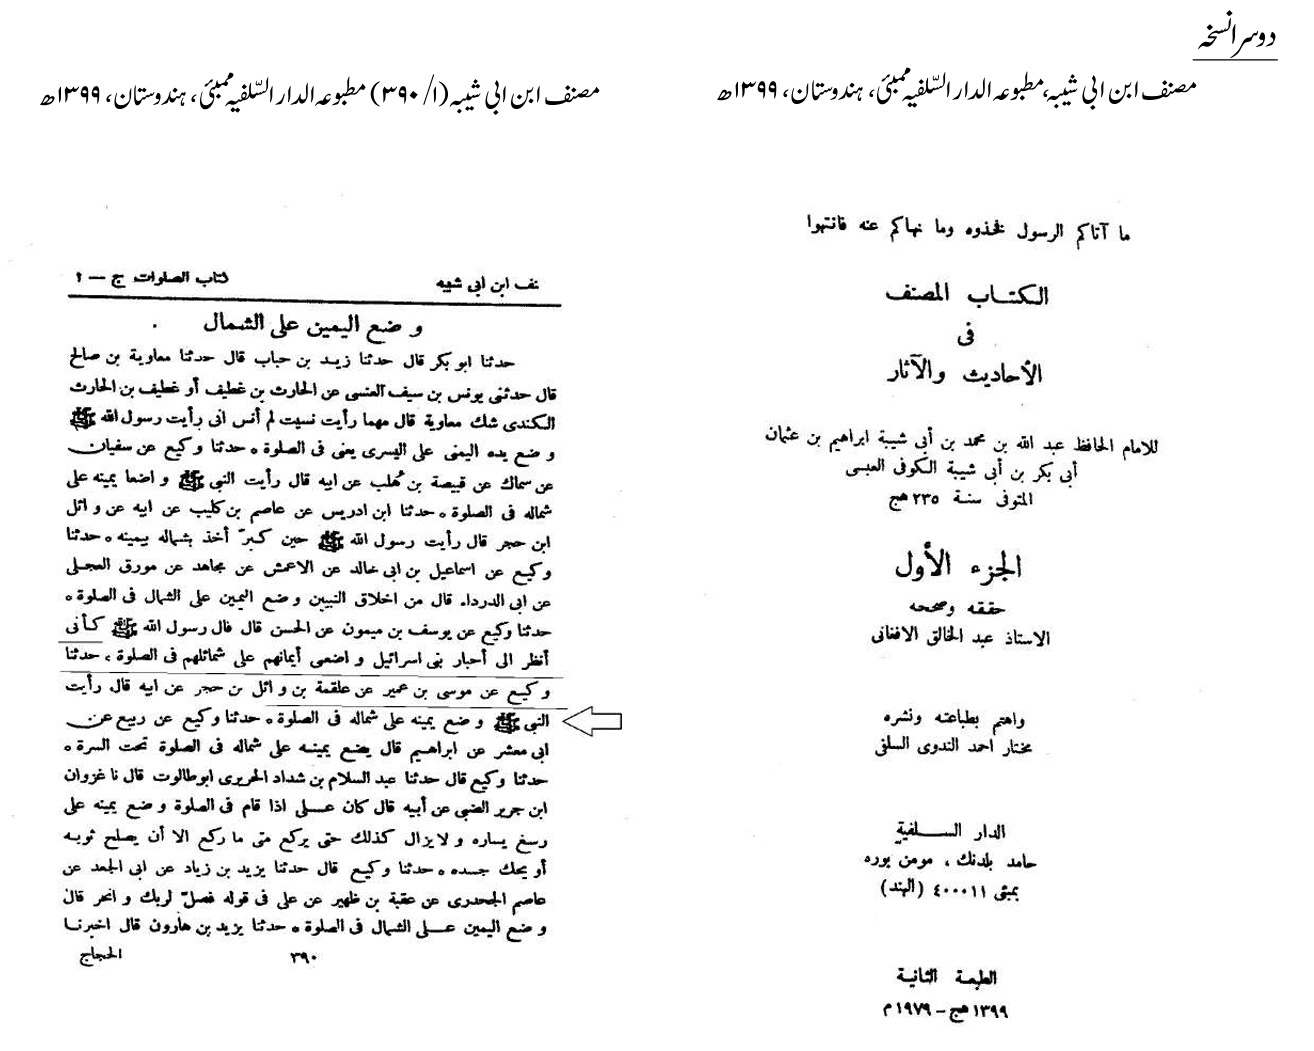 دوسرا نسخہ
مصنف ابن ابی شیبہ، مطبوعہ الدار السّلفیہ ممبئی، ہندوستان، ۱۳۹۹ھ
ما آتاكم الرسول فخذوه وما نهاكم عنه فانتهوا
الكتاب المصنف
فى
الأحاديث والآثار
للامام الحافظ عبد الله بن محمد بن أبي شيبة ابراهيم بن عثمان
أبي بكر بن أبي شيبة الكوفى العبسى
المتوفى سنة ٢٣٥ هج
الجزء الأول
حققه وصححه
الاستاذ عبد الخالق الافغانى
واهتم بطباعته ونشره
مختار احمد الندوى السلفى
الدار السلفية
حامد بلدنك ، مومن بوره
بمبئى ٤٠٠٠١١ (الهند)
الطبعة الثانية
١٣٩٩ هج – ١٩٧٩ م
مصنف ابن ابی شیبہ (۱/ ۳۹۰) مطبوعہ الدار السّلفیہ ممبئی، ہندوستان، ۱۳۹۹ھ
نف ابن ابى شيبه
كتاب الصلوات ج — ١
وضع اليمين على الشمال
حدثنا ابو بكر قال حدثنا زيد بن حباب قال حدثنا معاوية بن صالح
قال حدثنى يونس بن سيف العنسى عن الحارث بن غطيف أو غطيف بن الحارث
الكندى شك معاوية قال مهما رأيت نسيت لم أنس انى رأيت رسول الله ﷺ
وضع يده اليمنى على اليسرى يعنى فى الصلوة ٭ حدثنا وكيع عن سفيان
عن سماك عن قبيصة بن هُلب عن ابيه قال رأيت النبى ﷺ واضعا يمينه على
شماله فى الصلوة ٭ حدثنا ابن ادريس عن عاصم بن كليب عن ابيه عن وائل
ابن حجر قال رأيت رسول الله ﷺ حين كبرّ أخذ بشماله بيمينه ٭ حدثنا
وكيع عن اسماعيل بن ابى خالد عن الاعمش عن مجاهد عن مورق العجلى
عن ابى الدرداء قال من اخلاق النبيين وضع اليمين على الشمال فى الصلوة ٭
حدثنا وكيع عن يوسف بن ميمون عن الحسن قال قال رسول الله ﷺ كأنى
أنظر الى أحبار بنى اسرائيل واضعى أيمانهم على شمائلهم فى الصلوة ٭ حدثنا
وكيع عن موسى بن عمير عن علقمة بن وائل بن حجر عن ابيه قال رأيت
النبى ﷺ وضع يمينه على شماله فى الصلوة ٭ حدثنا وكيع عن ربيع عن
ابى معشر عن ابراهيم قال يضع يمينه على شماله فى الصلوة تحت السرة ٭
حدثنا وكيع قال حدثنا عبد السلام بن شداد الحريرى ابوطالوت قال نا غزوان
ابن جرير الضبى عن أبيه قال كان عـلى اذا قام فى الصلوة وضع يمينه على
رسغ يساره ولا يزال كذلك حتى يركع متى ما ركع الا أن يصلح ثوبه
أو يحك جسده ٭ حدثنا وكيع قال حدثنا يزيد بن زياد عن ابى الجعد عن
عاصم الجحدرى عن عقبة بن ظهير عن على فى قوله فصلّ لربك وانحر قال
وضع اليمين عـلى الشمال فى الصلوة ٭ حدثنا يزيد بن هارون قال اخبرنا
٣٩٠
الحجاج